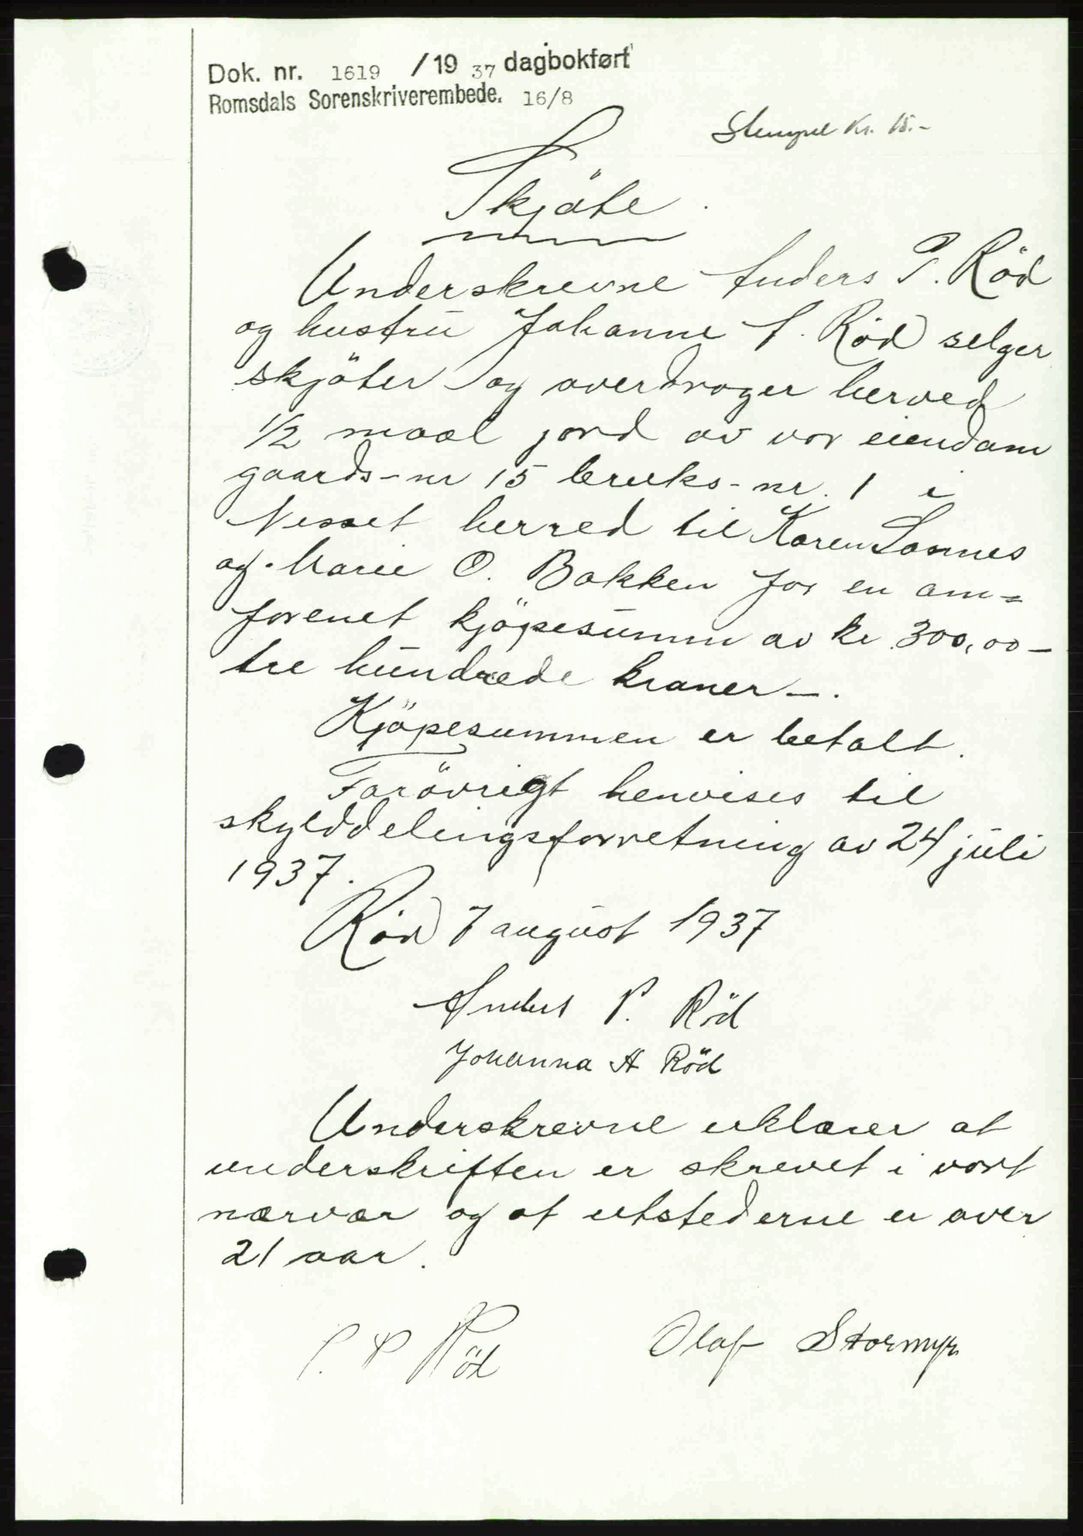 Dok. nr. 1619 /19 37 dagbokført
Romsdals Sorenskriverembede. 16/8
Stempel kr. 15.-
Skjöte.
Underskrevne Anders P. Röd
og hustru Johanne A. Rød selger
skjöter og overdrager herved
1/2 maal jord av vor eiendom
gaards-nr 15 bruks-nr. 1 i
Nesset herred til Karen Sannes
og Marie O. Bakken for en om=
forenet kjöpesumm av kr 300,00-
tre hundrede kroner-.
Kjöpesummen er betalt.
Forövrigt henvises til
skylddelingsforretning av 24 juli
1937.
Rød 7 august 1937
Anders P. Röd
Johanna A Röd
Underskrevne erklærer at
underskriften er skrevet i vort
nærvær og at utstederne er over
21 aar.
P. P Röd Olaf Stormyr